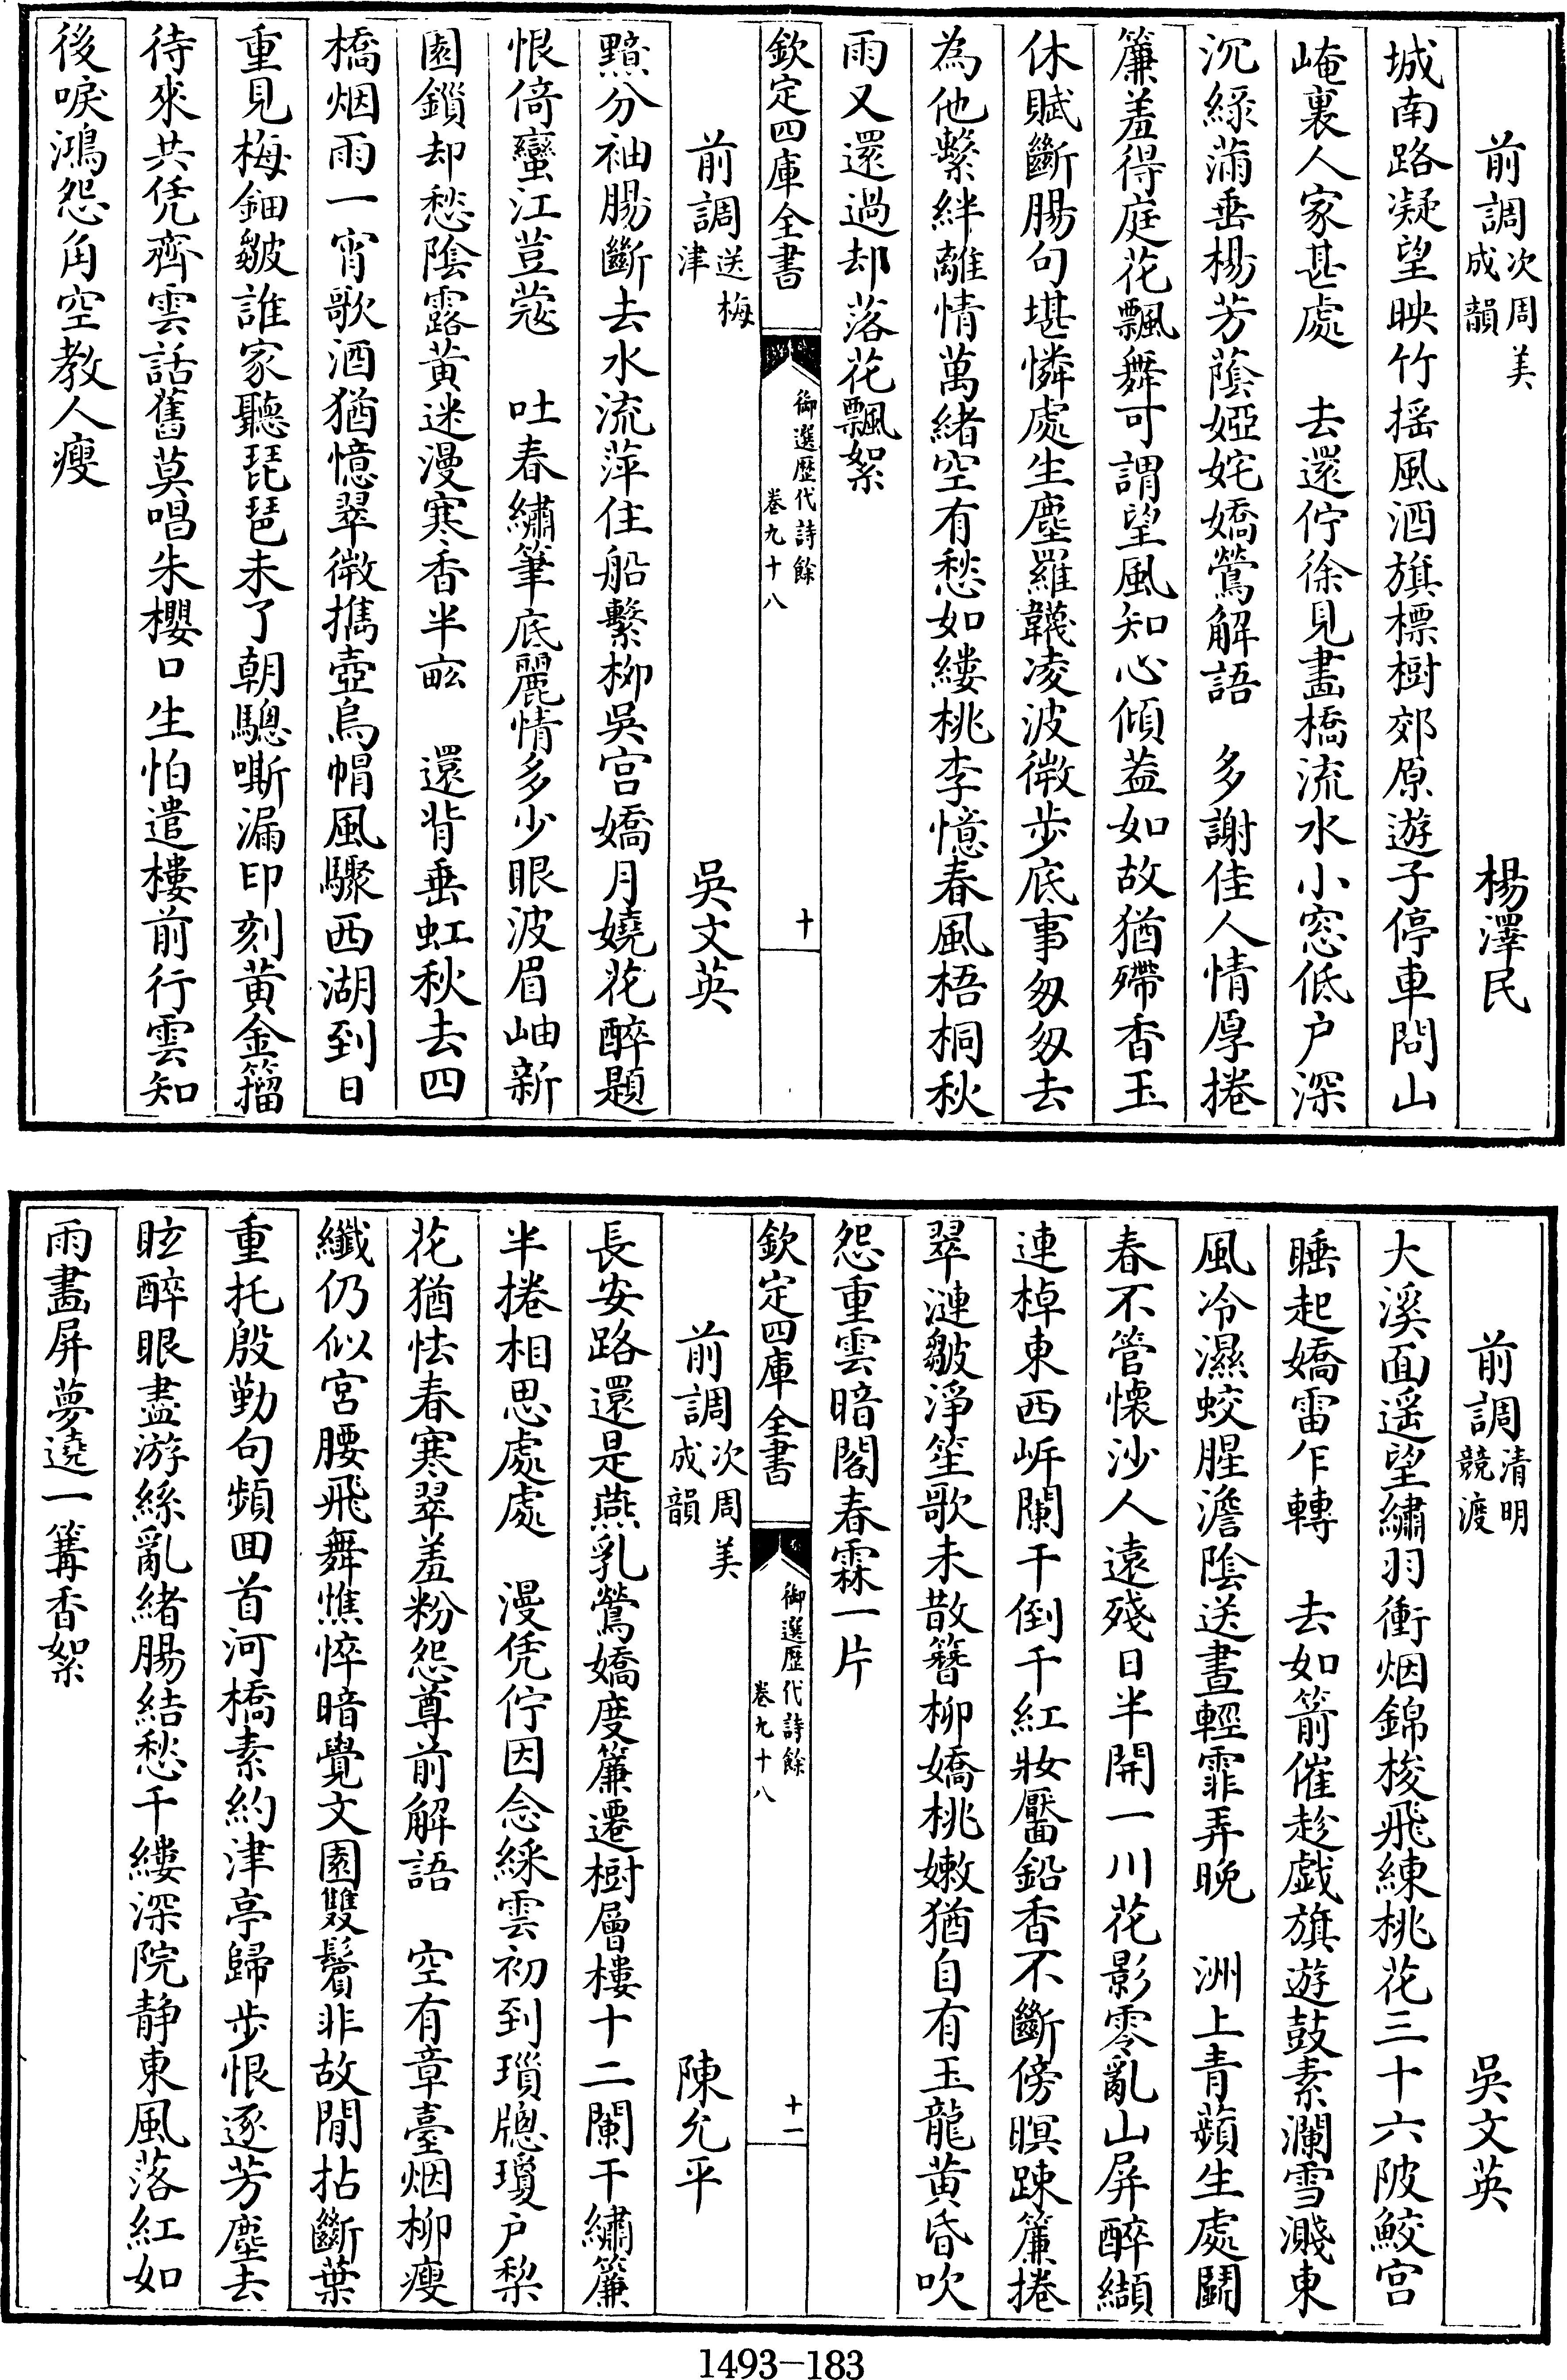 前調次周美成韻　楊澤民
城南路凝望映竹搖風酒旗標樹郊原遊子停車問山
崦裏人家甚處　去還佇徐見畫橋流水小窓低户深
沉綠滿垂楊芳蔭婭姹嬌鶯解語　多謝佳人情厚捲
簾羞得庭花飄舞可謂望風知心傾葢如故猶殢香玉
休賦斷腸句堪憐處生塵羅韈凌波微步底事匆匆去
為他繫絆離情萬緒空有愁如縷桃李憶春風梧桐秋
雨又還過却落花飄絮
欽定四庫全書　御選歷代詩餘卷九十八　十
前調送梅津　吳文英
黯分袖腸斷去水流萍住船繫栁吳宫嬌月嬈花醉題
恨倚蠻江荳蔻　吐春繡筆底麗情多少眼波眉岫新
園鎖却愁陰露黃迷漫寒香半畝　還背垂虹秋去四
橋烟雨一宵歌酒猶憶翠微擕壺烏帽風驟西湖到日
重見梅鈿皺誰家聽琵琶未了朝驄嘶漏印刻黃金籀
待來共凭齊雲話舊莫唱朱櫻口生怕遣樓前行雲知
後唳鴻怨角空教人瘦
前調清明競渡　吳文英
大溪面遥望繡羽衝烟錦梭飛練桃花三十六陂鮫宫
睡起嬌雷乍轉　去如箭催趁戱旗遊鼓素瀾雪濺東
風冷濕蛟腥澹陰送晝輕霏弄晚　洲上青蘋生處鬬
春不管懐沙人遠殘日半開一川花影零亂山屏醉纈
連棹東西㟁闌干倒千紅妝靨鉛香不斷傍暝踈簾捲
翠漣皺淨笙歌未散簪柳嬌桃嫩猶自有玉龍黃昏吹
怨重雲暗閣春霖一片
欽定四庫全書　御選歷代詩餘卷九十八　十一
前調次周美成韻　陳允平
長安路還是燕乳鶯嬌度簾遷樹層樓十二闌干繡簾
半捲相思處處　漫凭佇因念綵雲初到瑣牕瓊户梨
花猶怯春寒翠羞粉怨尊前解語　空有章臺烟柳瘦
纖仍似宮腰飛舞憔悴暗覺文園雙鬢非故閒拈斷葉
重托殷勤句頻囬首河橋素約津亭歸步恨逐芳塵去
眩醉眼盡游絲亂緒腸結愁千縷深院静東風落紅如
雨畫屏夢遶一篝香絮
1493—183